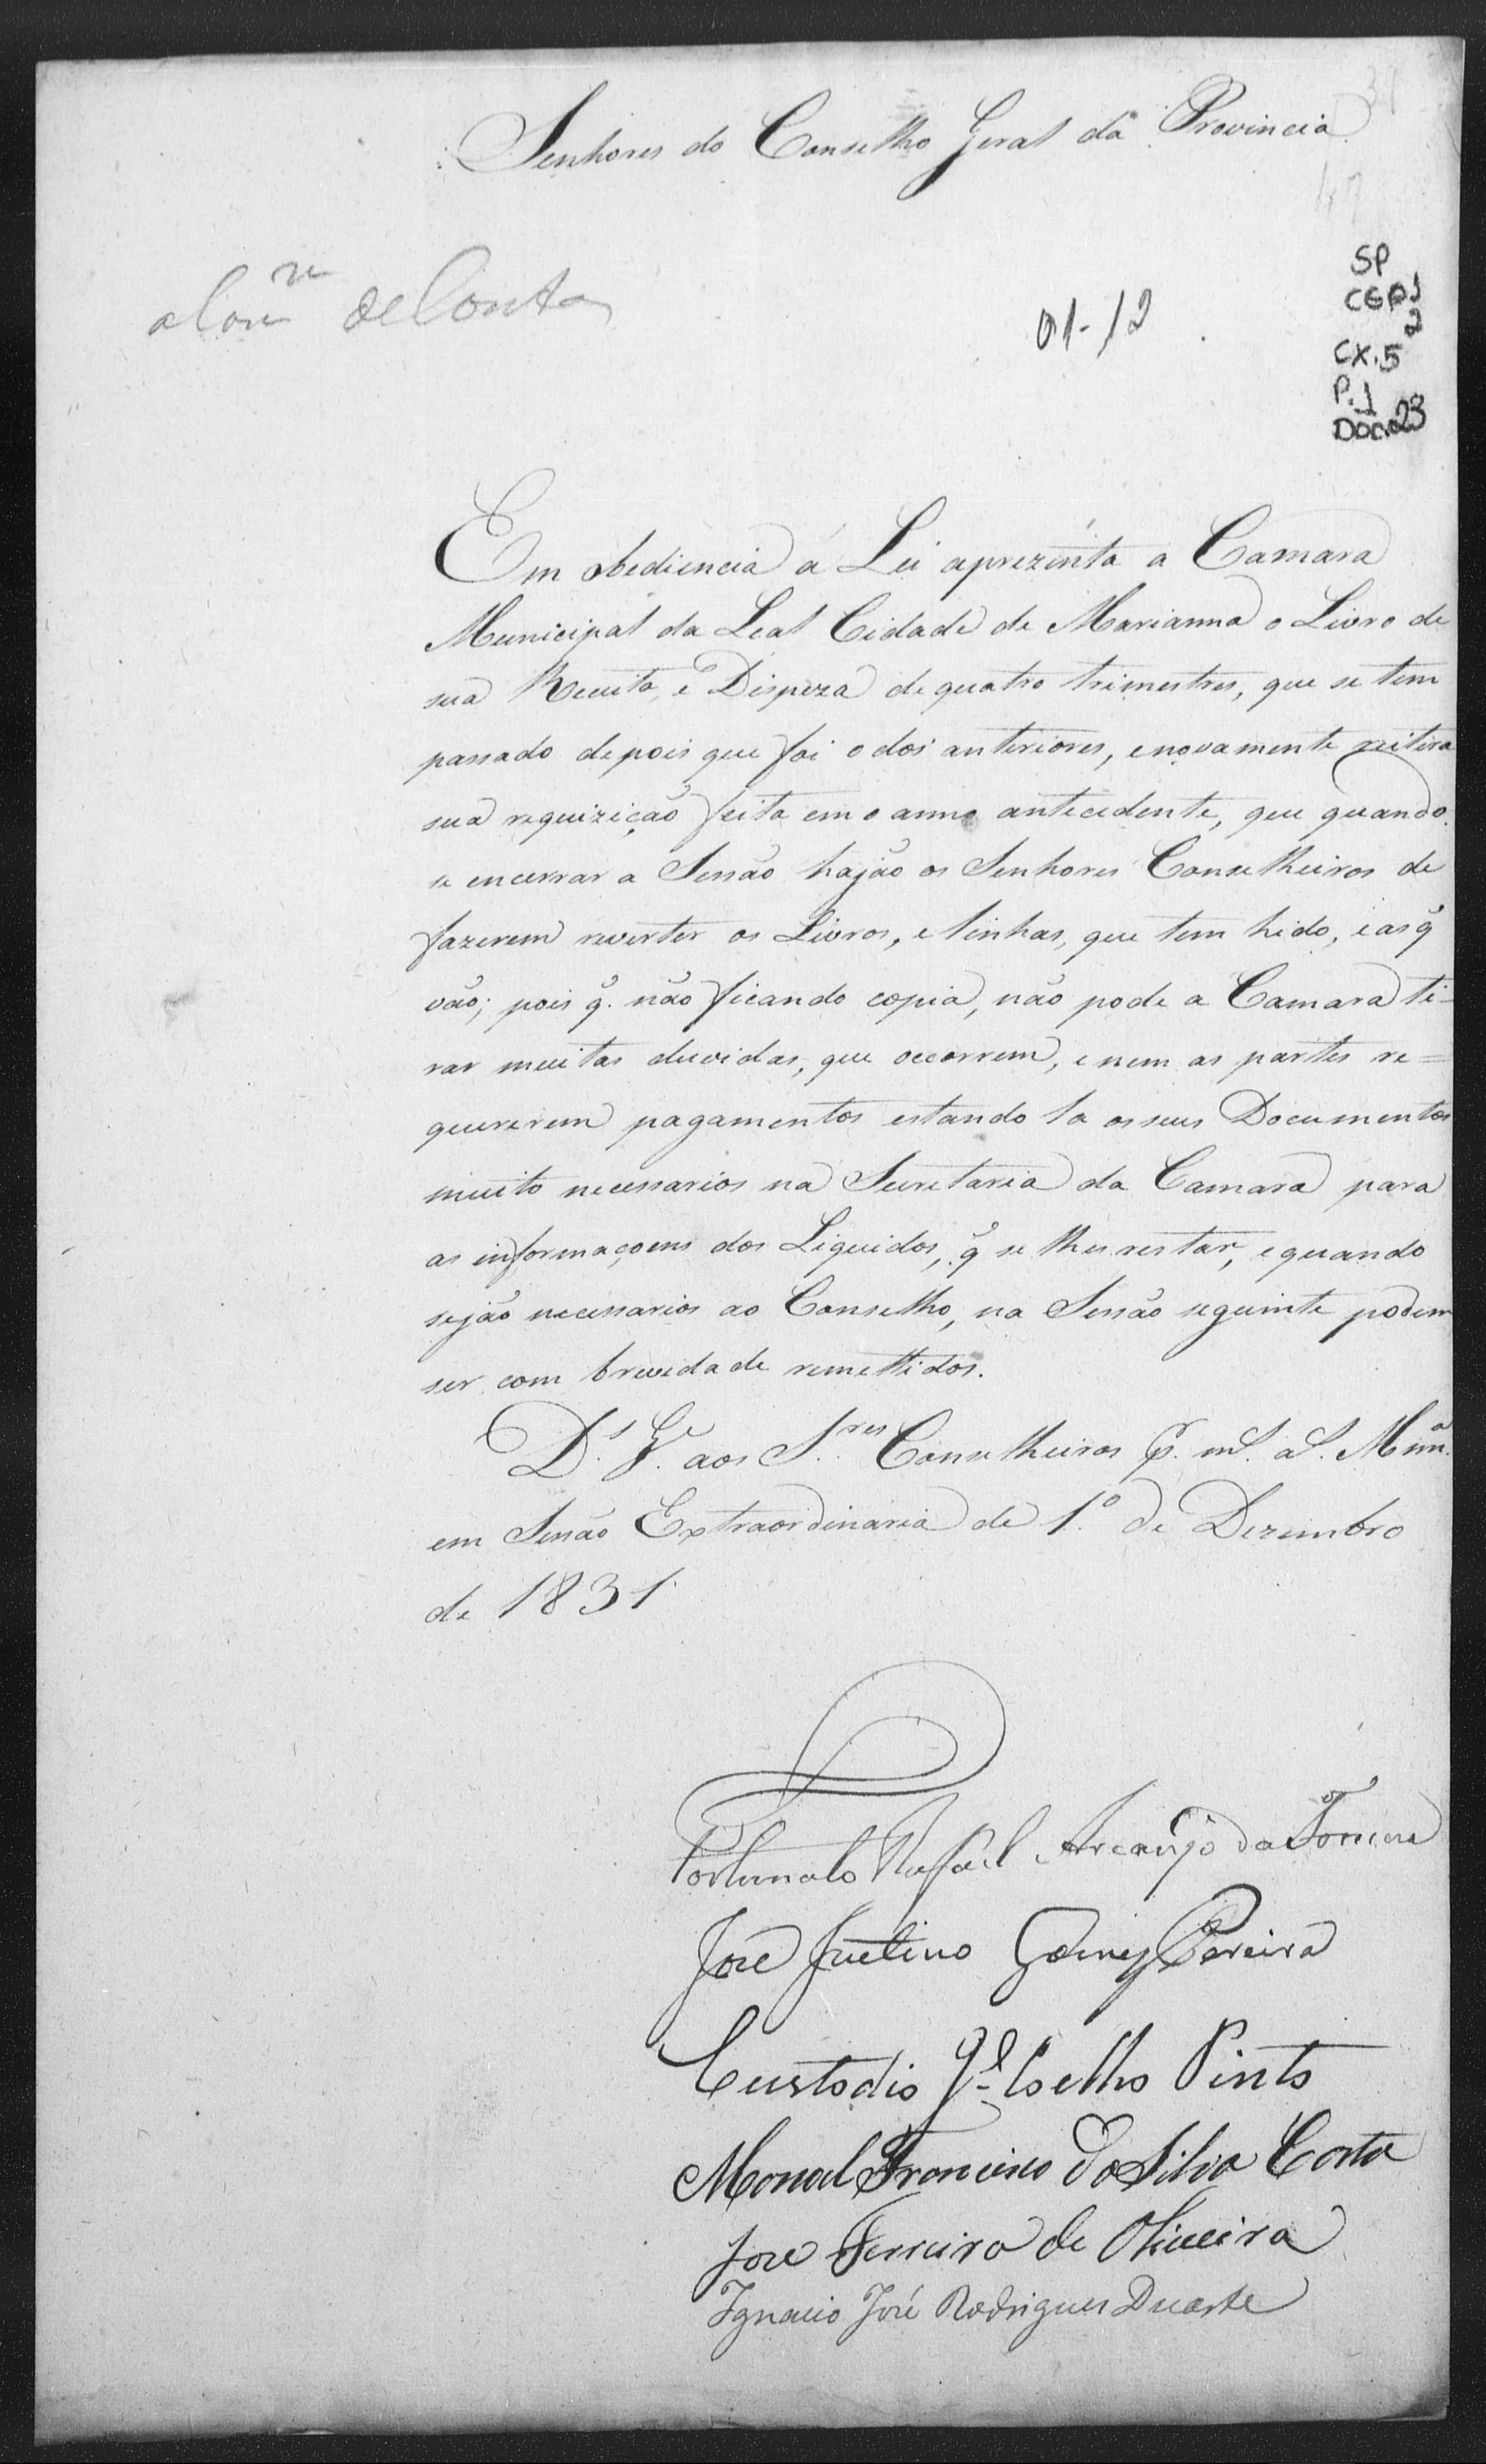 Senhores do Conselho Geral da Provincia
31
47
SP
CGP1
2
CX.5
P.1
Doc.23
a Com.m de Contas
01-12
Em obediencia á Lei aprezenta a Camara
Municipal da Leal Cidade de Marianna o Livro de
sua Receita, e Dispeza de quatro trimestres, que se tem
passado depois que foi o dos anteriores, e novamente reitera
sua requizição feita em o anno antecedente, que quando
se encerrar a Sessão hajão os Senhores Conselheiros de
fazerem reverter os Livros, e linhas, que tem hido, e as q̃
vão; pois q̃. não ficando copia, não pode a Camara ti-
rar muitas duvidas, que occorrem, e nem as partes re=
quererem pagamentos estando la os seus Documentos
muito necessarios na Secretaria da Camara para
as informaçoens dos Liquidos, q̃ se lhes restar, e quando
sejão necessarios ao Conselho, na Sessão seguinte podem
ser com brevidade remettidos.
D.s G.e aos S.res Conselheiros p. m.s a.s. Mnn.a
em Sessão Extraordinaria de 1.º de Dezembro
de 1831
Fortunato Rafael Arcanjo da Fonseca
José Justino Gomes Pereira
Custodio Jé Coelho Pinto
Manoel Francisco da Silva Costa
Joze Ferreira de Oliveira
Ignacio José Rodrigues Duarte